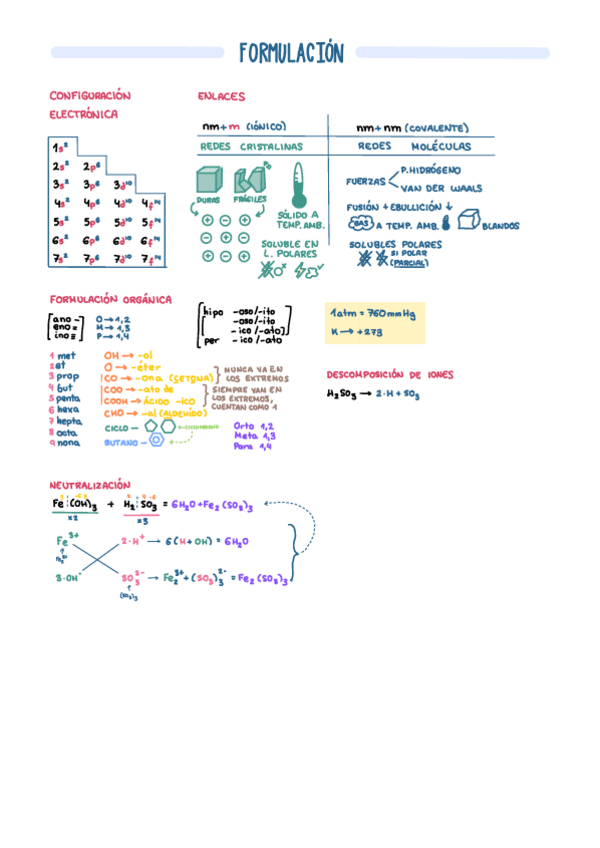 FORMULACIÓN
CONFIGURACIÓN
ELECTRÓNICA
1s²
2s² 2p⁶
3s² 3p⁶ 3d¹⁰
4s² 4p⁶ 4d¹⁰ 4f¹⁴
5s² 5p⁶ 5d¹⁰ 5f¹⁴
6s² 6p⁶ 6d¹⁰ 6f¹⁴
7s² 7p⁶ 7d¹⁰ 7f¹⁴
ENLACES
nm+m (IÓNICO)
REDES CRISTALINAS
DURAS FRÁGILES
SÓLIDO A
TEMP. AMB.
SOLUBLE EN
L. POLARES
nm+nm (COVALENTE)
REDES MOLÉCULAS
FUERZAS
P.HIDRÓGENO
VAN DER WAALS
FUSIÓN + EBULLICIÓN ↓
GAS A TEMP. AMB. BLANDOS
SOLUBLES POLARES
SI POLAR
(PARCIAL)
FORMULACIÓN ORGÁNICA
ano -
eno =
ino ≡
O → 1,2
M → 1,3
P → 1,4
hipo -oso/-ito
-oso/-ito
-ico/-ato
per -ico/-ato
1atm = 760mmHg
K → +273
1 met
2 et
3 prop
4 but
5 penta
6 hexa
7 hepta
8 octa
9 nona
OH → -ol
O → -éter
CO → -ona (SETONA)
COO → -ato de
COOH → ÁCIDO -ICO
CHO → -al (ALDEHÍDO)
NUNCA VA EN
LOS EXTREMOS
SIEMPRE VAN EN
LOS EXTREMOS,
CUENTAN COMO 1
CICLO -
BUTANO -
Orto 1,2
Meta 1,3
Para 1,4
DESCOMPOSICIÓN DE IONES
H₂SO₃ → 2·H + SO₃
NEUTRALIZACIÓN
Fe(OH)₃ + H₂SO₃ = 6H₂O + Fe₂(SO₃)₃
x2 x3
Fe³⁺ 2·H⁺ → 6(H+OH) = 6H₂O
3·OH⁻ SO₃²⁻ → Fe₂³⁺ + (SO₃)₃²⁻ = Fe₂(SO₃)₃
(SO₃)₃